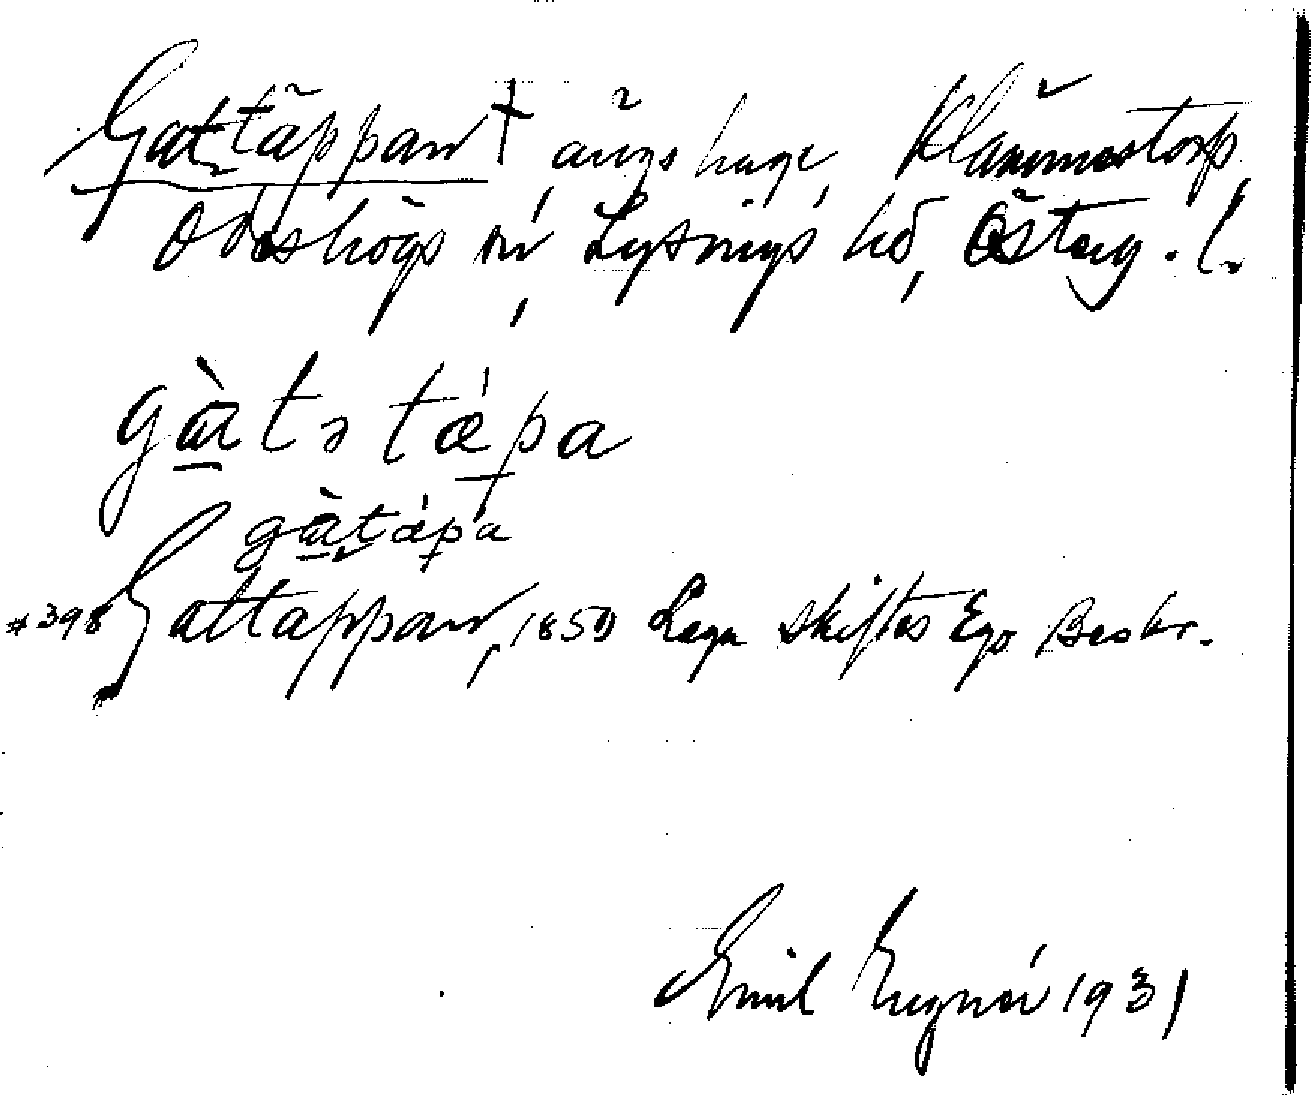 Gattäppan † ängshage, Klämmestorp,
Ödeshögs sn, Lysings hd, Österg. l.
gàtə tǽpa
gàtǽpa
*398 Gattäppan, 1850 Laga Skiftes Ego Beskr.
Emil 1931